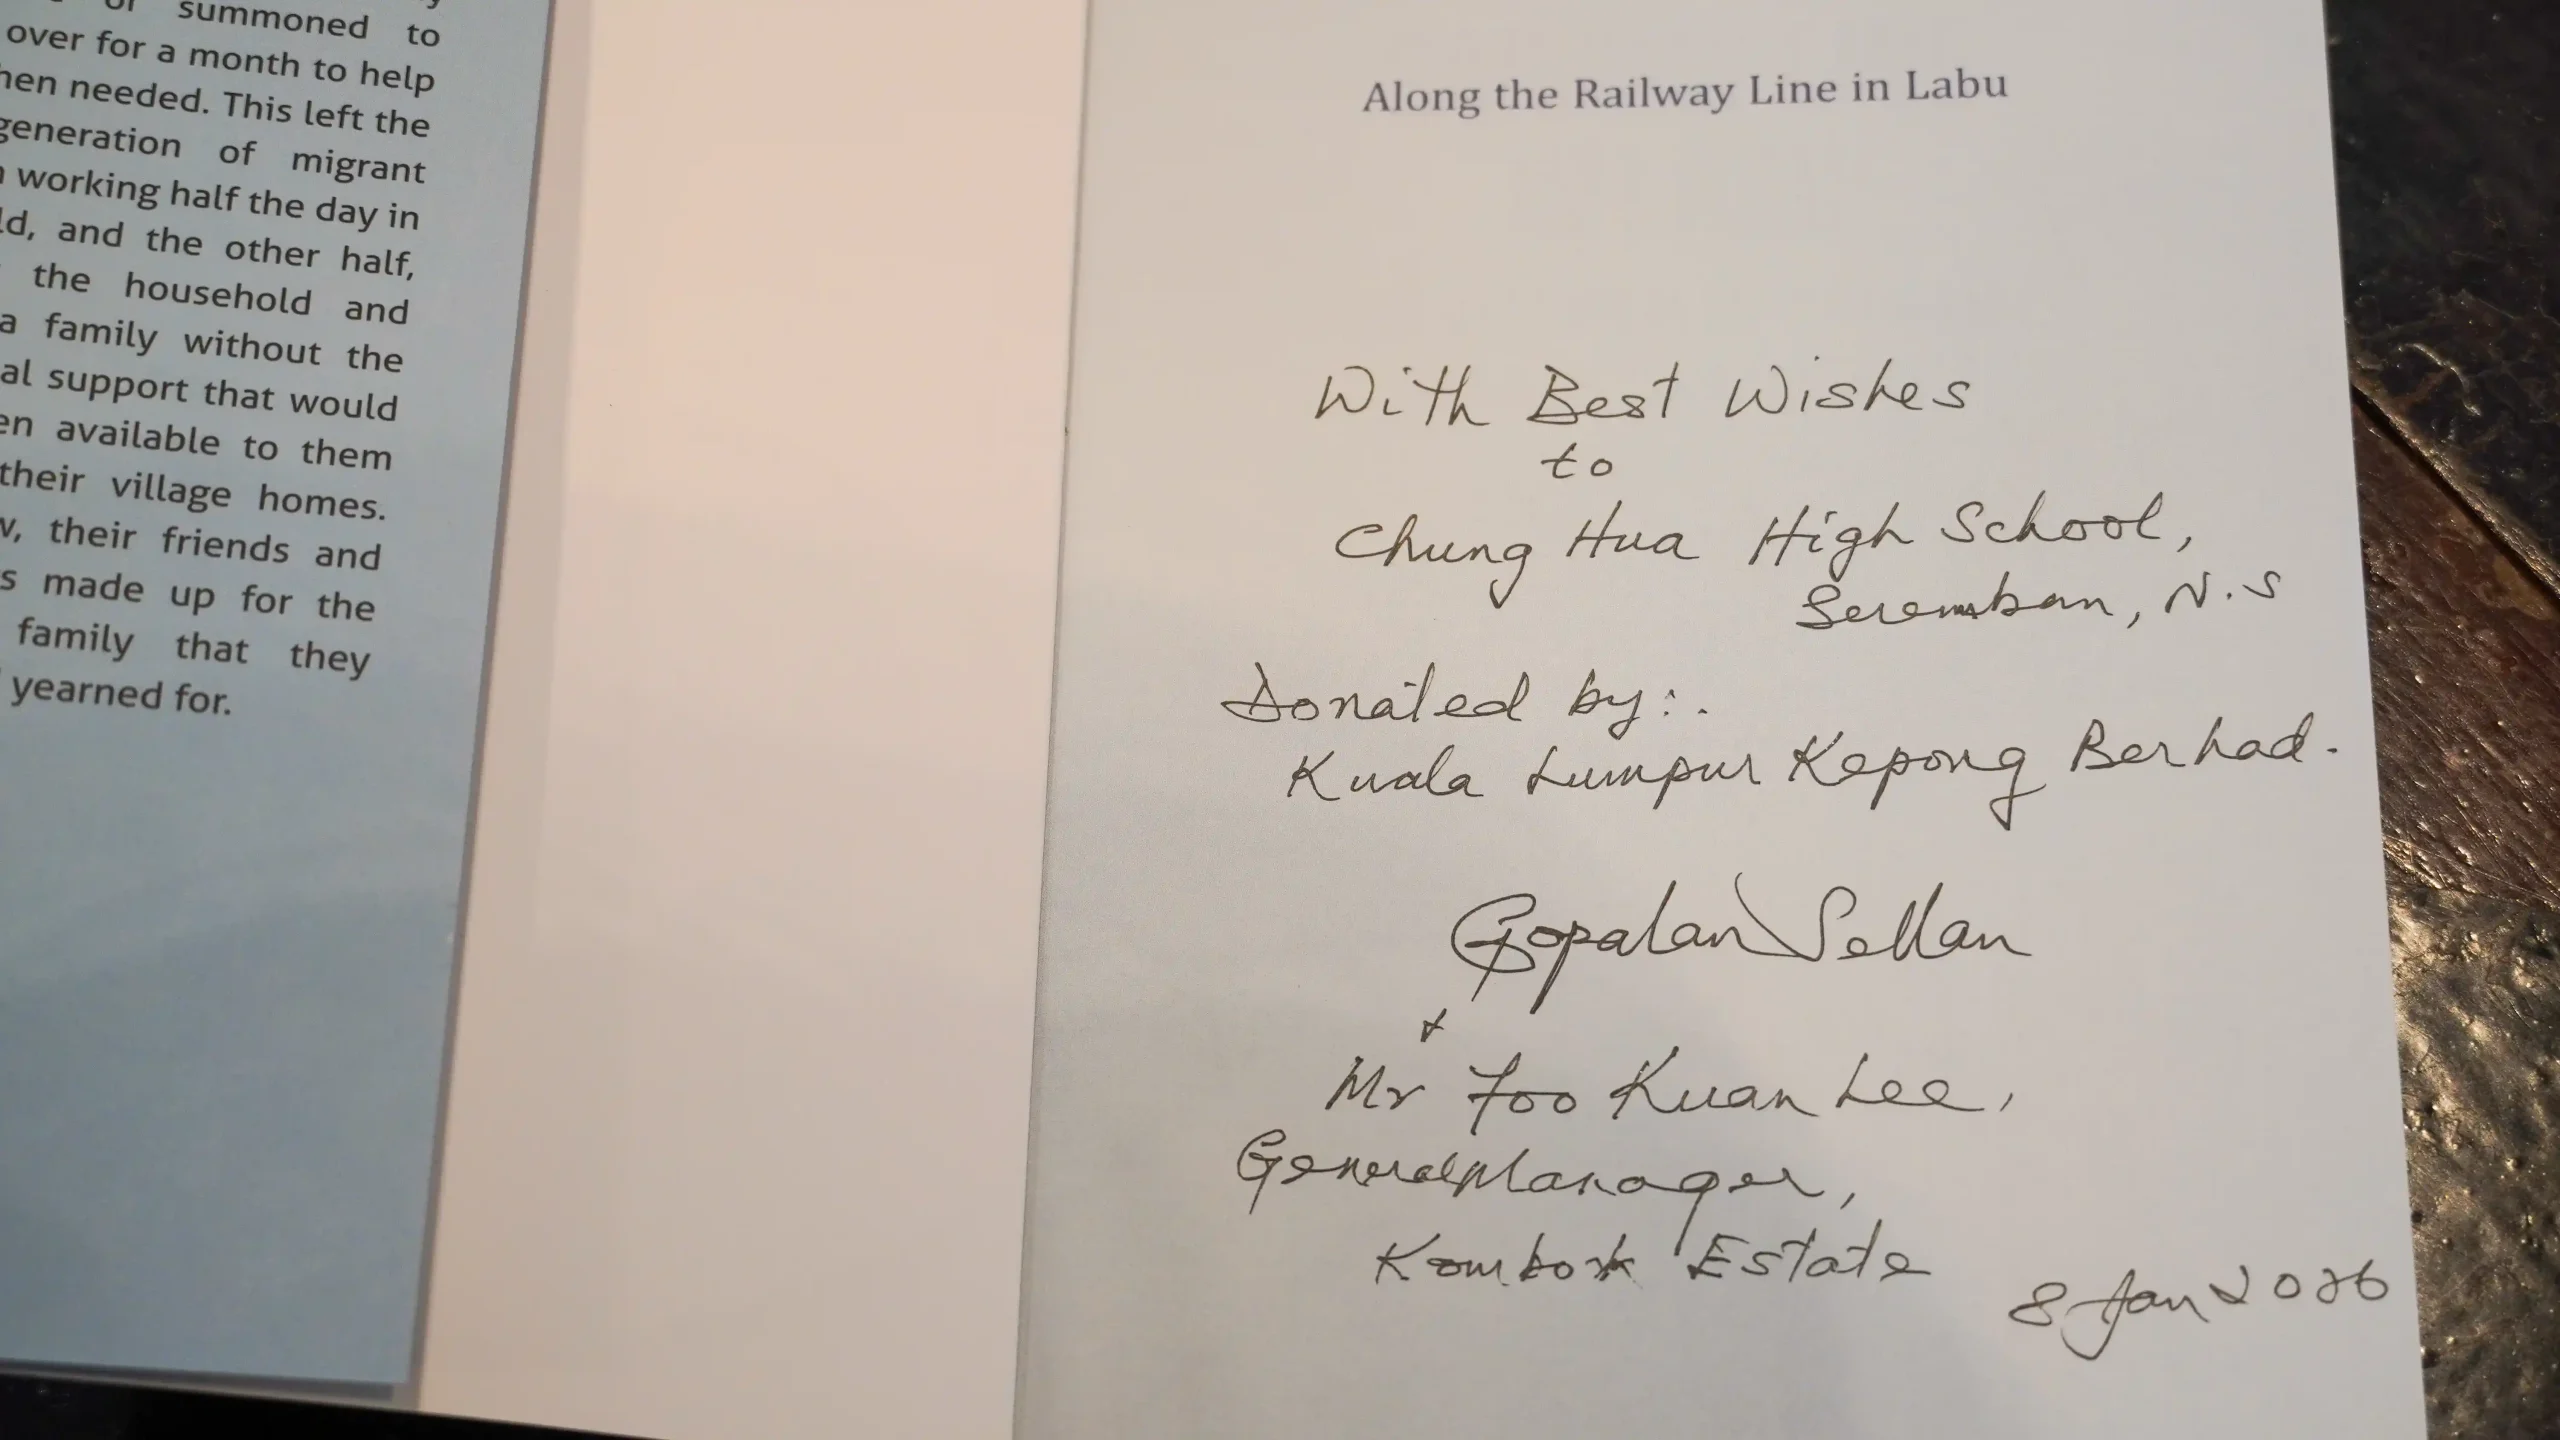 summoned to
over for a month to help
hen needed. This left the
generation of migrant
working half the day in
ld, and the other half,
the household and
a family without the
al support that would
en available to them
their village homes.
w, their friends and
s made up for the
family that they
yearned for.
Along the Railway Line in Labu
With Best Wishes
to
Chung Hua High School,
Seremban, N.S
Donated by:.
Kuala Lumpur Kepong Berhad.
Gopalan Sellan
+
Mr Foo Kuan Lee,
General Manager,
Kombok Estate
8 Jan 2026